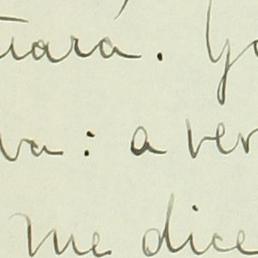 tiara. Yo
va: a ver
me dice